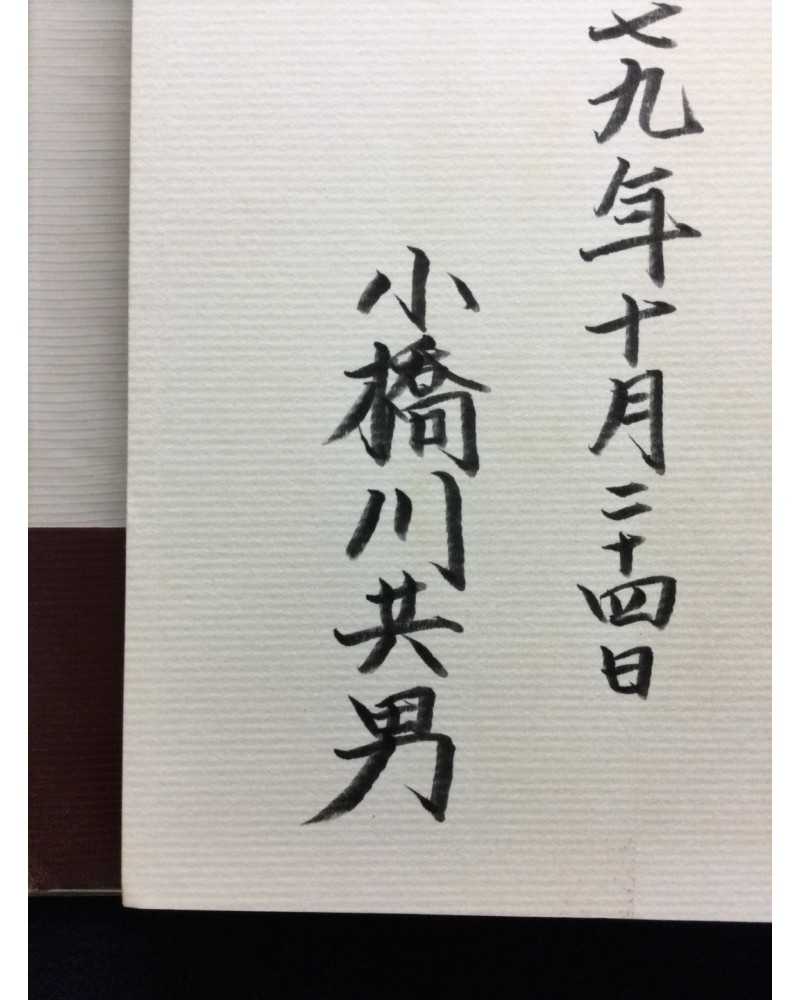 七九年十月二十四日
小橋川共男